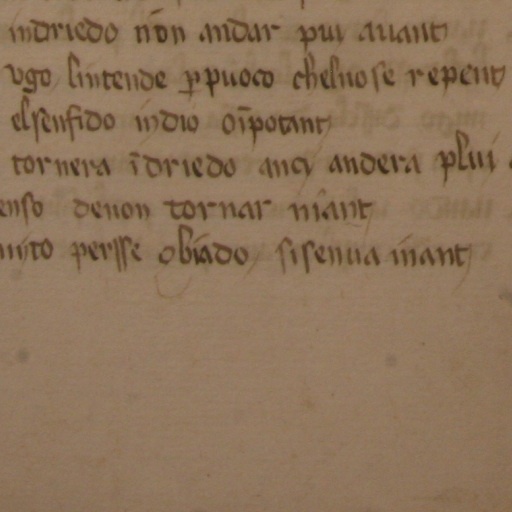 indriedo nōn andar pui auant
vgo lintende ꝑpuoco chelnose repent
elsenfido indio oīpotant
tornera īdriedo anci andera plui
enso denon tornar niant
persse obiado sisenua inant